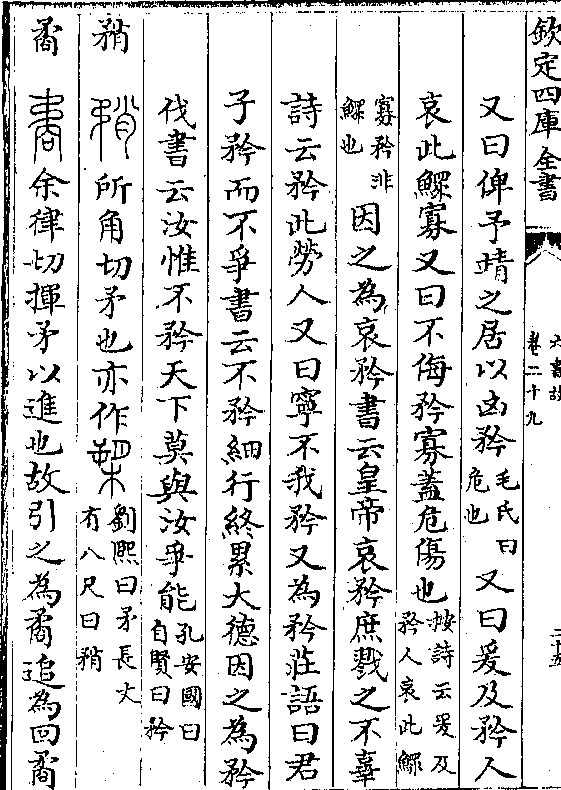 欽定四庫全書
六書故
卷二十九
又曰俾予靖之居以凶矜毛氏曰危也又曰爰及矜人
哀此鰥寡又曰不侮矜寡蓋危傷也按詩云爰及矜人哀此鰥
寡矜非鰥也因之為哀矜書云皇帝哀矜庶戮之不辜
詩云矜此勞人又曰寧不我矜又為矜莊語曰君
子矜而不爭書云不矜細行終累大德因之為矜
伐書云汝惟不矜天下莫與汝爭能孔安國曰自賢曰矜
矟 所角切矛也亦作 劉熙曰矛長丈有八尺曰矟
矞 余律切揮矛以進也故引之為矞追為回矞